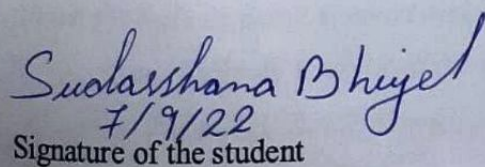 Sudarshana Bhujel
7/9/22
Signature of the student